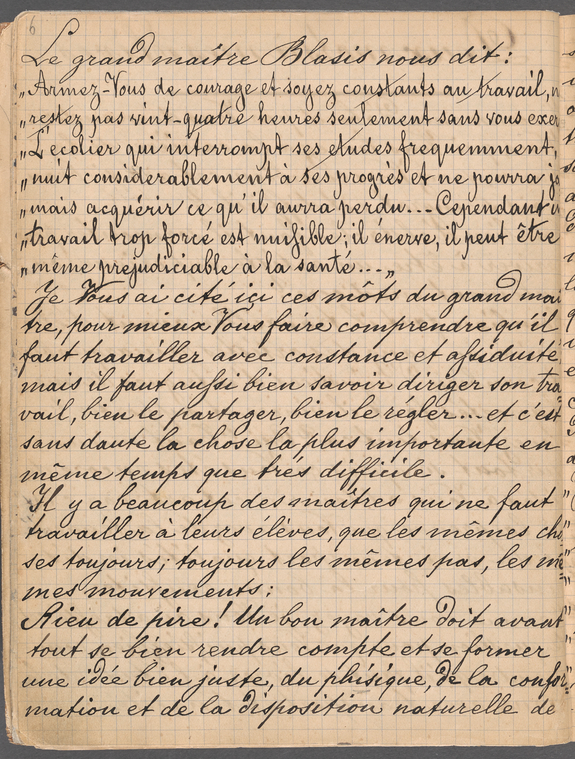 6
Le grand maître Blasis nous dit:
„Armez-Vous de courage et soyez constants au travail, n
„restez pas vint-quatre heures seulement sans vous exer
„L'écolier qui interrompt ses etudes frequemment,
„nuit considerablement à ses progrès et ne pourra ja
„mais acquérir ce qu'il aurra perdu... Cependant u
„travail trop forcé est nuisible; il énerve, il peut être
„même prejudiciable à la santé...„
Je Vous ai cité içi ces môts du grand mai
tre, pour mieux Vous faire comprendre qu'il
faut travailler avec constance et assiduité
mais il faut aussi bien savoir diriger son tra
vail, bien le partager, bien le régler... et c'est
sans daute la chose la plus importante en
même temps que trés difficile.
Il y a beaucoup des maîtres qui ne faut
travailler à leurs élèves, que les mêmes cho
ses toujours; toujours les mêmes pas, les mê
mes mouvements;
Rieu de pire! Un bon maître doit avant
tout se bien rendre compte et se former
une idée bien juste, du phisique, de la confor
mation et de la disposition naturelle de